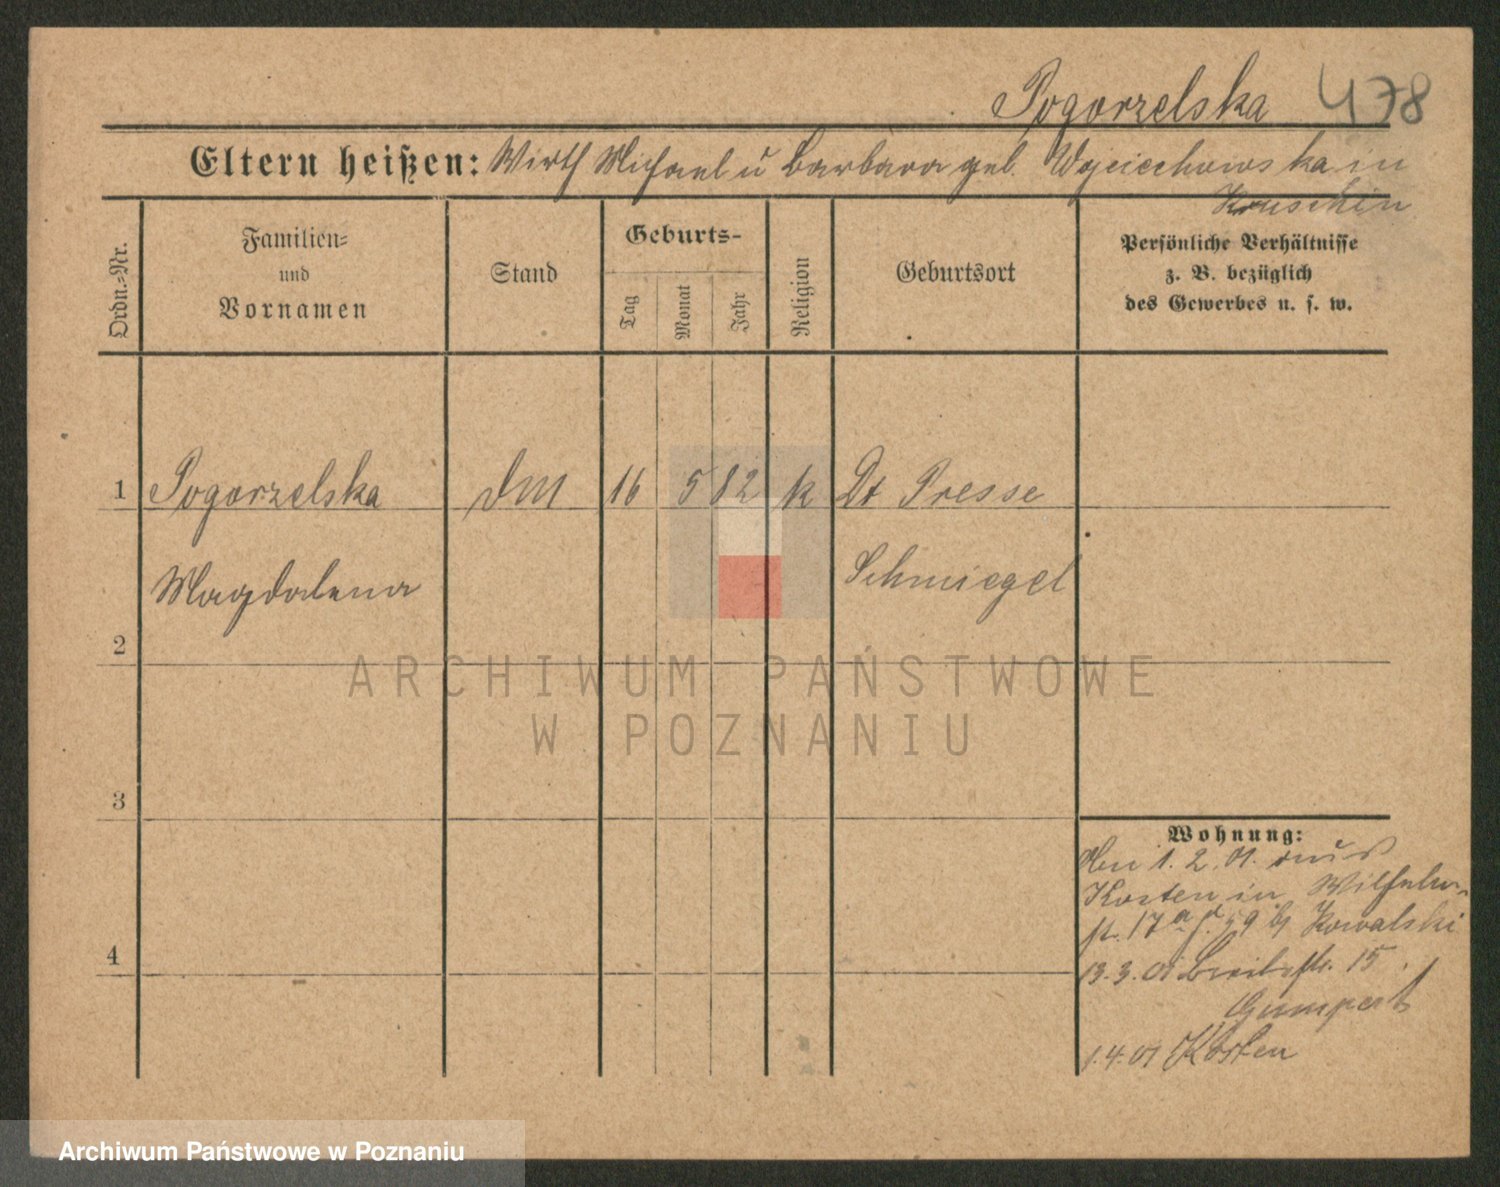 Pogorzelska 478
Eltern heißen: Wirth Michael u Barbara geb. Wojciechowska in
Kruschin
Ordn.=Nr.
Familien=
und
Vornamen
Stand
Geburts-
Tag
Monat
Jahr
Religion
Geburtsort
Persönliche Verhältnisse
z. B. bezüglich
des Gewerbes u. s. w.
1 Pogorzelska dm 16 5 82 k Dt Presse
Magdalena Schmiegel
2
3
4
Wohnung:
1. 2. 01. aus
Kosten in Wilhelm-
st. 17a 59 b/ Kowalski
13.3.01 Breitestr. 15.
Gumpert
1.4.01 Kosten
ARCHIWUM PAŃSTWOWE
W POZNANIU
Archiwum Państwowe w Poznaniu